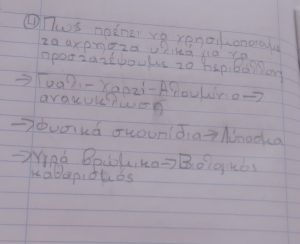 ④ Πως πρέπει να χρησιμοποιούμε
τα άχρηστα υλικά για να
προστατέψουμε το περιβάλλον
→ Γυαλι - χαρτί - Αλουμίνιο →
ανακύκλωση
→ Φυσικά σκουπίδια → Λίπασμα
→ Νερό βρώμικο → Βιολογικός
καθαρισμός